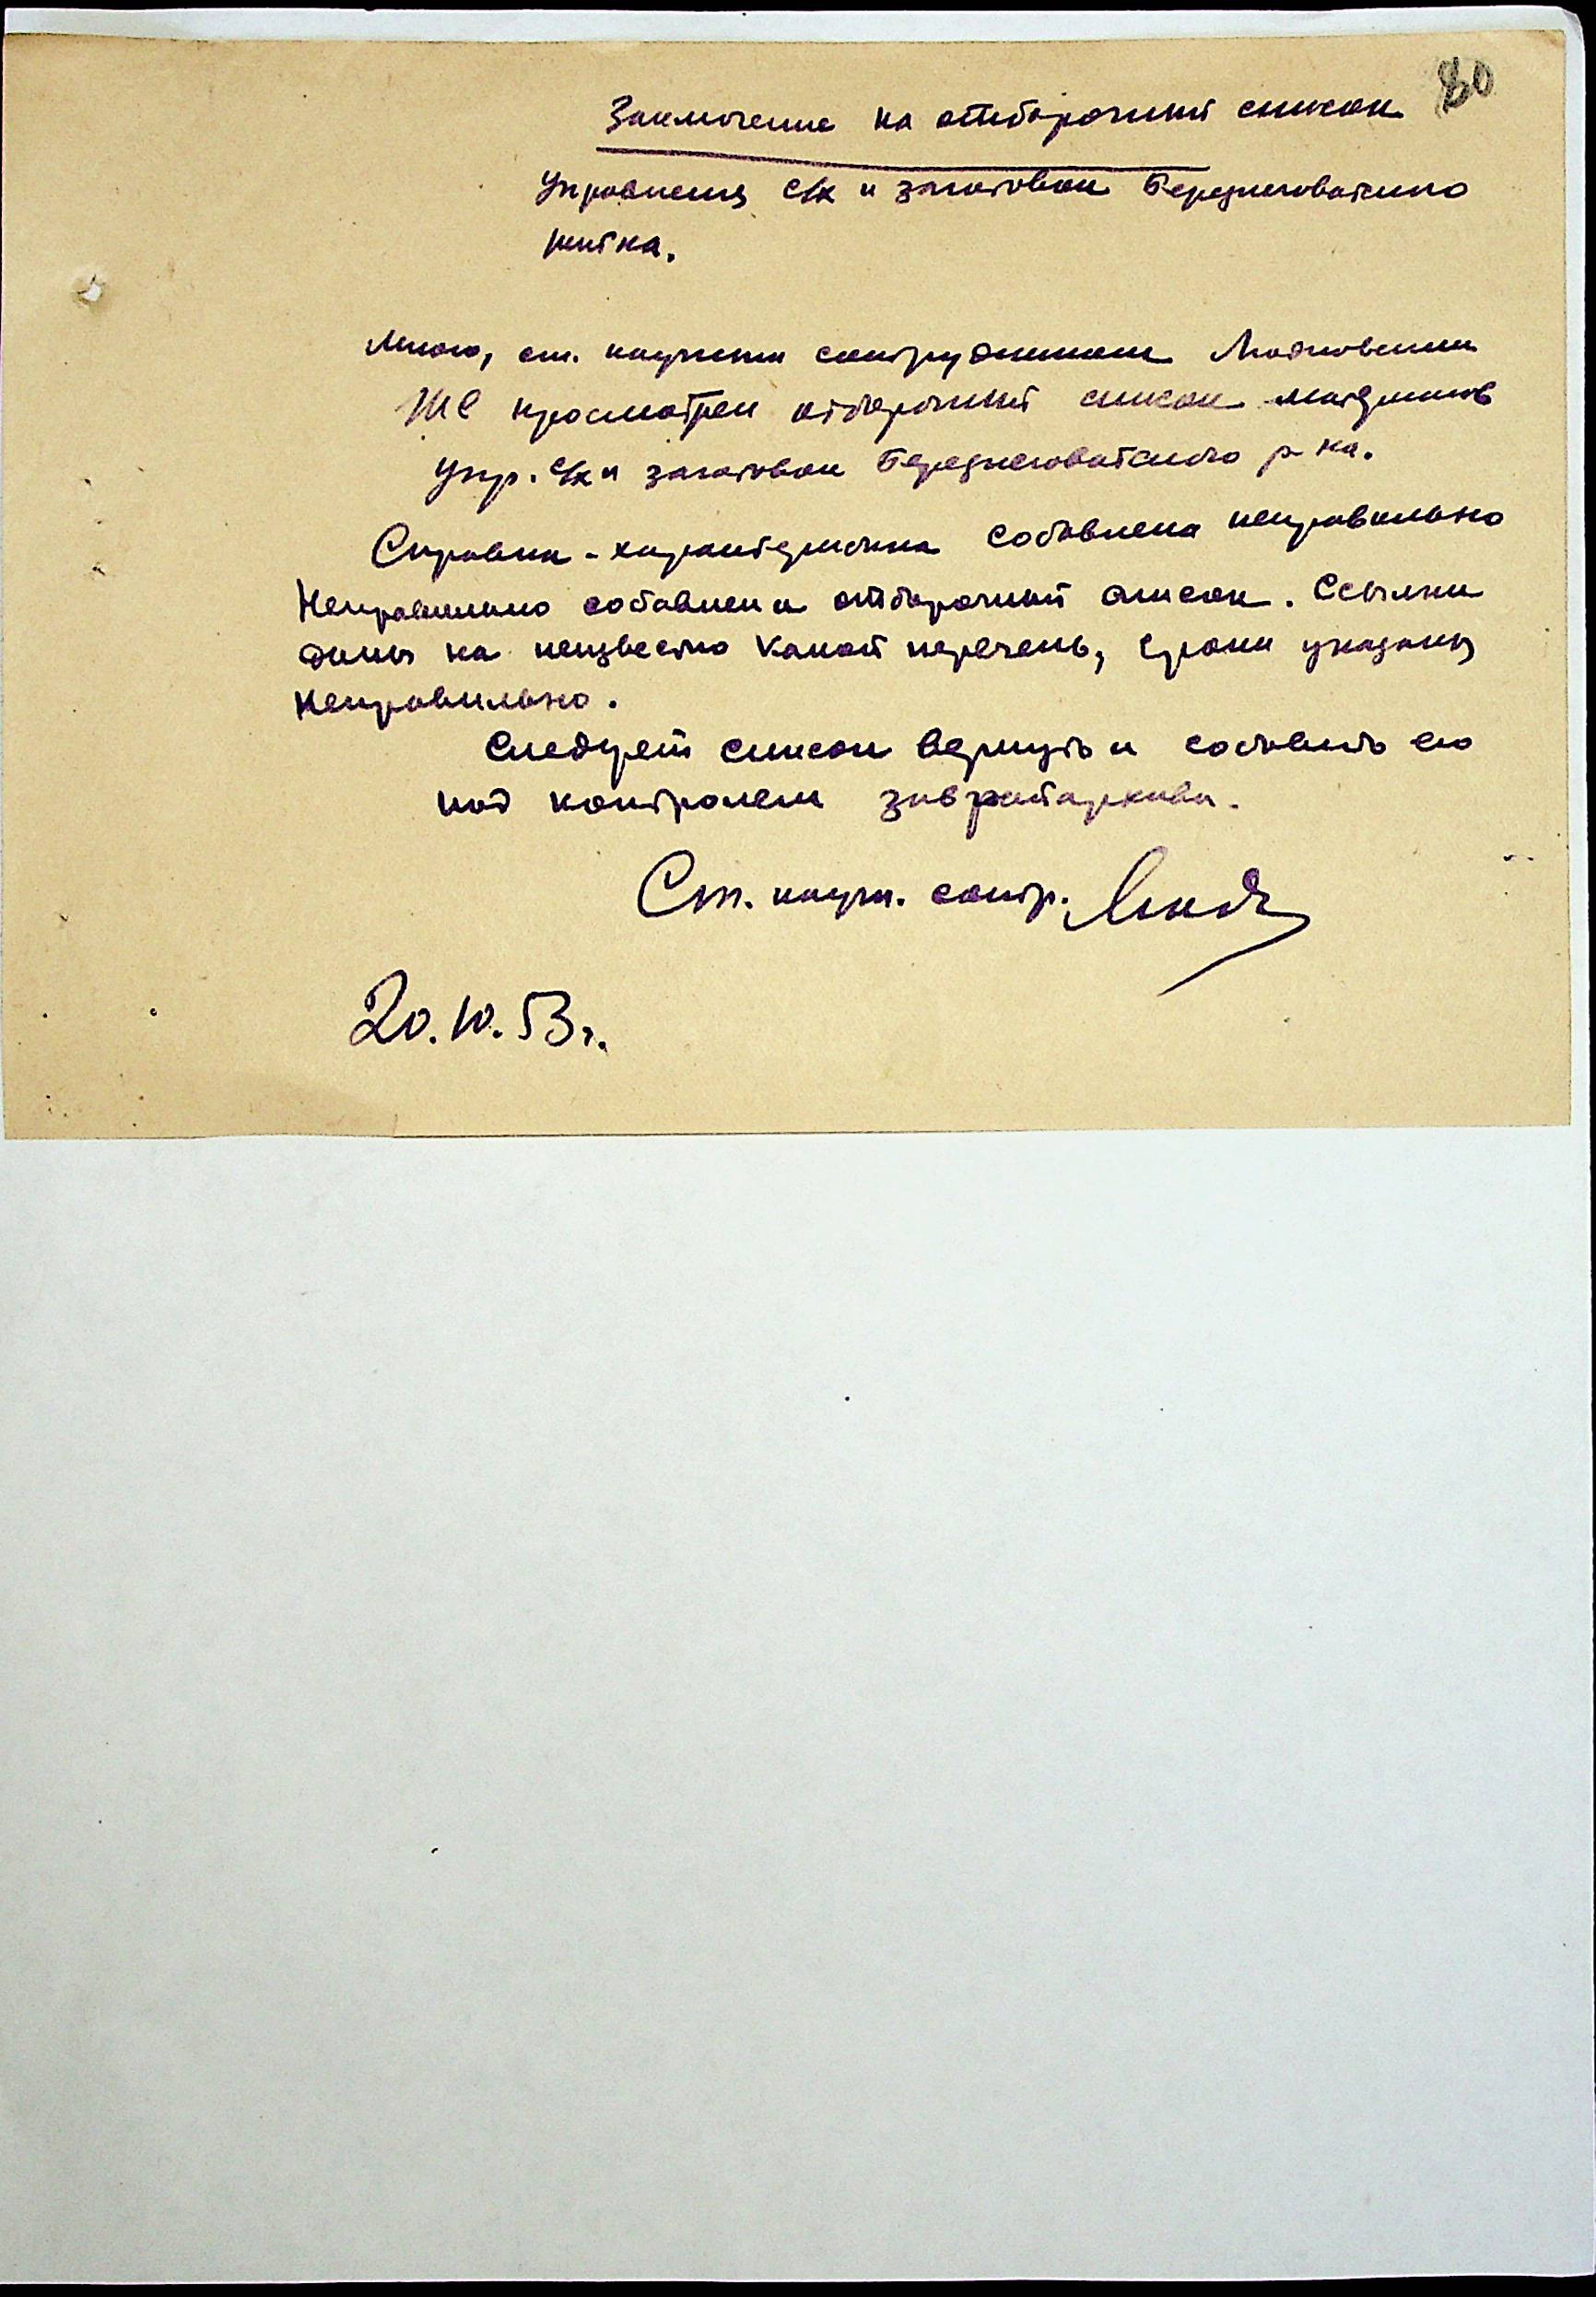 80
Заключение на отборочный список
Управления с/х и заготовок Березнеговатского
района.
Мною, ст. научным сотрудником
просмотрен отборочный список материалов
Упр. с/х и заготовок Березнеговатского р-на.
Справка-характеристика составлена неправильно
Неправильно составлен и отборочный список. Ссылки
даны на неизвестно какой перечень, сроки указаны
неправильно.
Следует список вернуть и составить его
под контролем заврайархива.
Ст. научн. сотр.
20.10.53г.